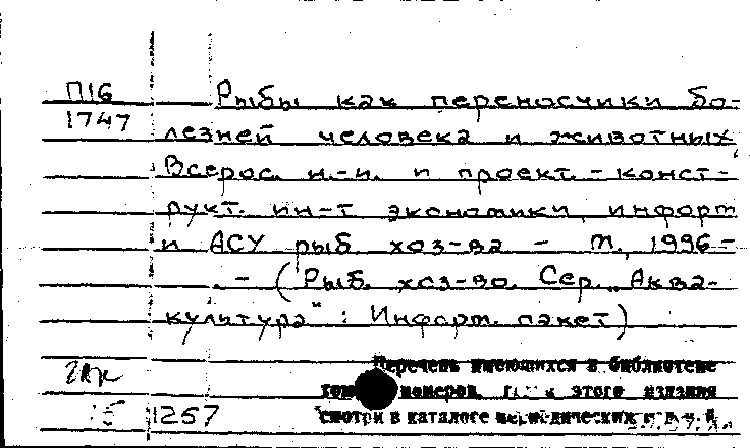 П16
1747
Рыбы как переносчики бо-
лезней человека и животных,
Всерос. н.-и. и проект. - конст-
рукт. ин-т экономики, информ
и АСУ рыб. хоз-ва - М., 1996-
. - (Рыб. хоз-во. Сер. „Аква-
культура" : Информ. пакет)
Перечень имеющихся в библиотеке
номеров этого издания
смотри в каталоге периодических
1257